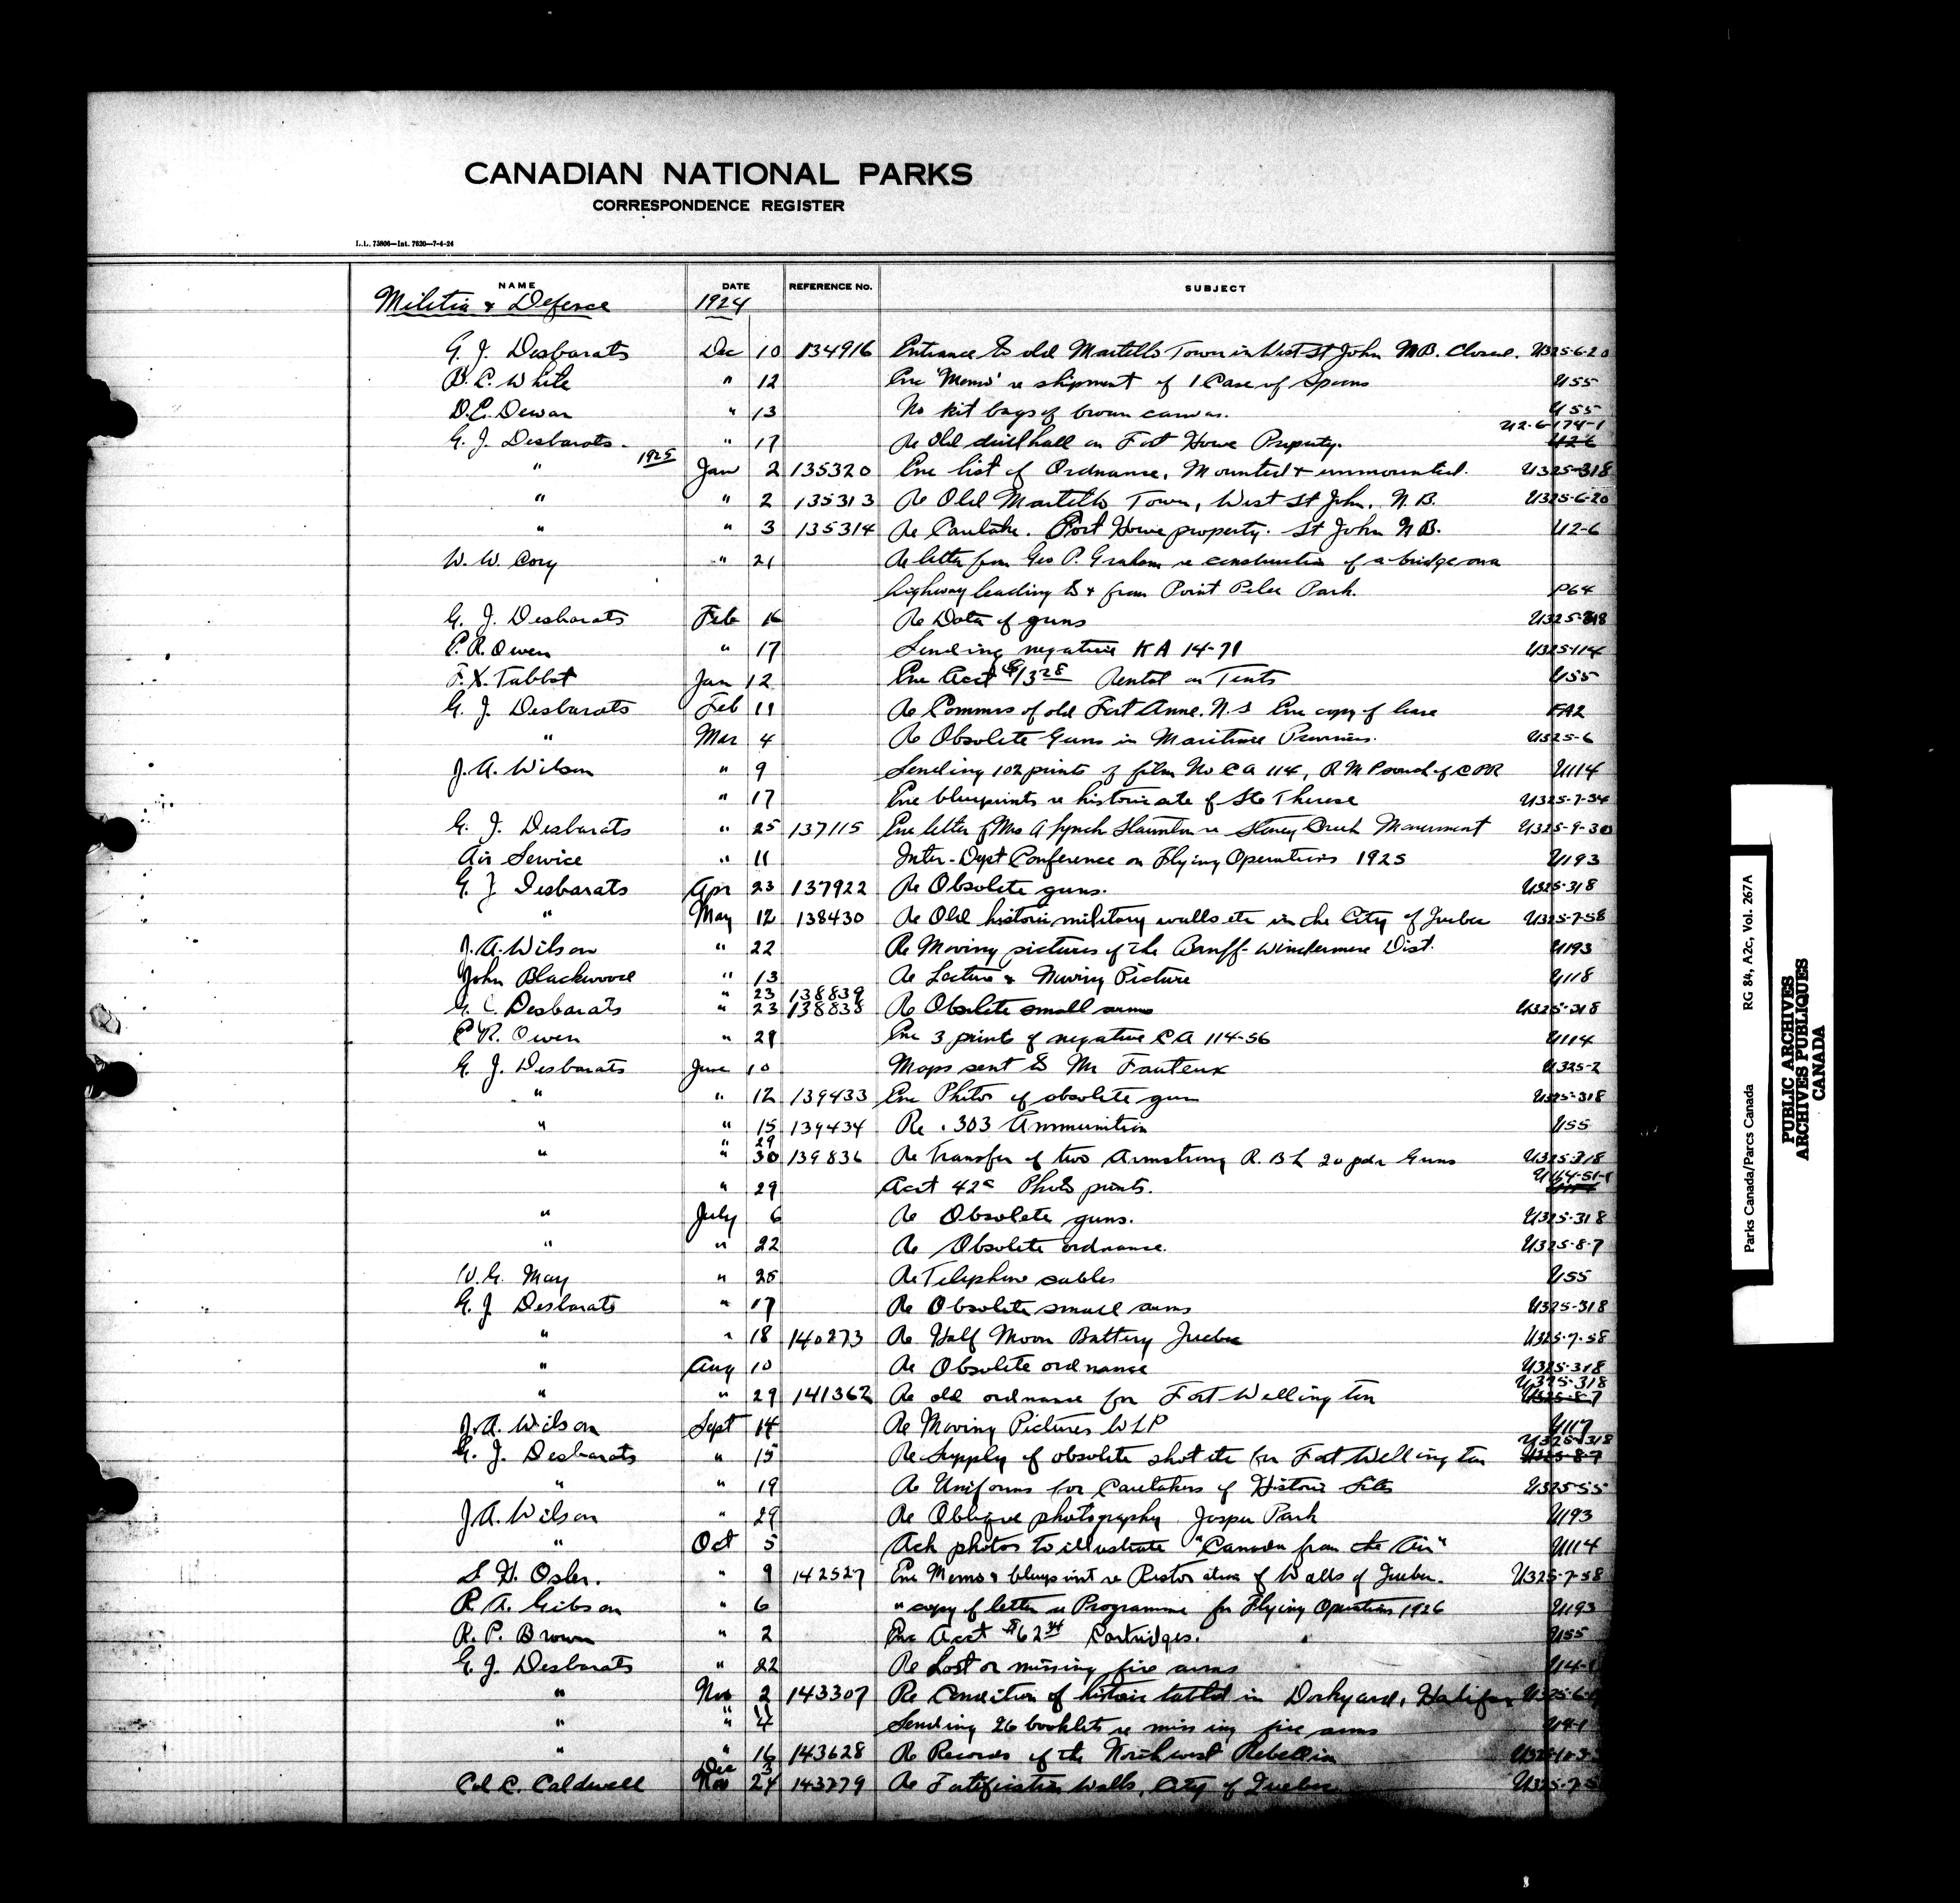 CANADIAN NATIONAL PARKS
CORRESPONDENCE REGISTER
L.L. 73806—Int. 7630—7-4-24
NAME DATE REFERENCE No. SUBJECT
Militia & Defence 1924
G. J. Desbarats Dec 10 134916 Entrance to old Martello Tower in West St John N.B. Closed. U325-6-20
B. C. White " 12 Enc 'Memo' re shipment of 1 Case of Spoons U55
D. E. Dewar " 13 No kit bags of brown canvas. U55
U2-6-174-1
G. J. Desbarats. " 17 Re Old drill hall on Fort Howe Property. U2-6
1925
" Jan 2 135320 Enc list of Ordnance, Mounted & unmounted. U325-318
" " 2 135313 Re Old Martello Tower, West St John, N.B. U325-6-20
" " 3 135314 Re Caretaker. Fort Howe property. St John N.B. U2-6
W. W. Cory " 21 Re letter from Geo P. Graham re construction of a bridge on a
highway leading to & from Point Pelee Park. P64
G. J. Desbarats Feb 16 Re Data of guns U325-318
C. R. Owen " 17 Sending negative KA 14-71 U325-114
F. X. Tabbot Jan 12 Enc Acct $13 28 Rental on Tents U55
G. J. Desbarats Feb 11 Re Commrs of old Fort Anne. N.S Enc copy of lease FA2
" Mar 4 Re Obsolete Guns in Maritime Provinces. U325-6
J. A. Wilson " 9 Sending 102 prints of film No CA 114, of CPR U114
" 17 Enc blueprints re historic site of Ste Therese U325-7-34
G. J. Desbarats " 25 137115 Enc letter of Mrs A Lynch Staunton re Stoney Creek Monument U325-9-30
Air Service " 11 Inter-Dept Conference on Flying Operations 1925 U193
G. J. Desbarats Apr 23 137922 Re Obsolete guns. U325-318
" May 12 138430 Re Old historic military walls etc in the City of Quebec U325-7-58
J. A. Wilson " 22 Re Moving pictures of the Banff-Windermere Dist. U193
John Blackwood " 13 Re Lecture & Moving Picture U118
" 23 138839
G. C. Desbarats " 23 138838 Re Obsolete small arms U325-318
C R. Owen " 29 Enc 3 prints of negative CA 114-56 U114
G. J. Desbarats June 10 Maps sent to Mr Fauteux U325-2
" " 12 139433 Enc Photos of obsolete gun U325-318
" " 15 139434 Re .303 Ammunition U55
" 29
" " 30 139836 Re Transfer of two Armstrong R.B.L 20 pdr Guns U325-318
U114-51-1
" 29 Acct 42c Photo prints. U114
" July 6 Re Obsolete guns. U325-318
" " 22 Re Obsolete ordnance. U325-8-7
W. G. May " 25 Re Telephone cables U55
G. J Desbarats " 17 Re Obsolete small arms U325-318
" " 18 140273 Re Half Moon Battery Quebec U325-7-58
" Aug 10 Re Obsolete ordnance U325-318
U325-318
" " 29 141362 Re old ordnance for Fort Wellington U325-8-7
J. A. Wilson Sept 14 Re Moving Pictures WLP U117
U325-318
G. J. Desbarats " 15 Re Supply of obsolete shot etc for Fort Wellington U325-8-7
" " 19 Re Uniforms for Caretakers of Historic Sites U325-55
J. A. Wilson " 29 Re Oblique photography Jasper Park U193
" Oct 5 Ack photos to illustrate "Canada from the Air" U114
S. H. Osler. " 9 142527 Enc Memo & blueprint re Restoration of Walls of Quebec. U325-7-58
R. A. Gibson " 6 " copy of letter re Programme for Flying Operations 1926 U193
R. P. Brown " 2 Enc Acct $62 34 Cartridges. U55
G. J. Desbarats " 22 Re Lost or missing fire arms U4-1
" Nov 2 143307 Re Condition of historic tablet in Dockyard, Halifax U325-6-
" 11
" " 4 Sending 26 booklets re missing fire arms U4-1
" " 16 143628 Re Records of the Northwest Rebellion
Dec 3
Col C. Caldwell Nov 24 143779 Re Fortification Walls, City of Quebec U325-7-5
Parks Canada/Parcs Canada RG 84, A2c, Vol. 267A
PUBLIC ARCHIVES
ARCHIVES PUBLIQUES
CANADA